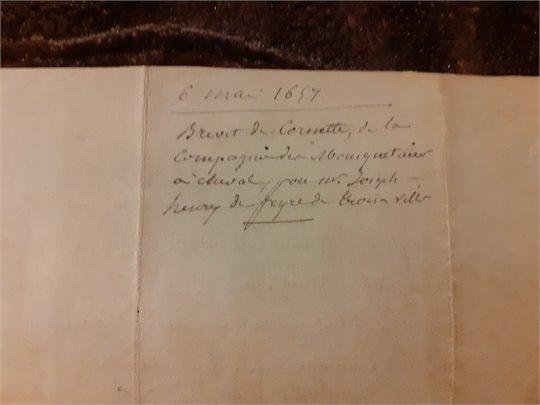 6 mai 1657
Brevet de Cornette, de la
Compagnie des Mousquetaires
à cheval, pour mr. Joseph
henry de peyre de Trois villes